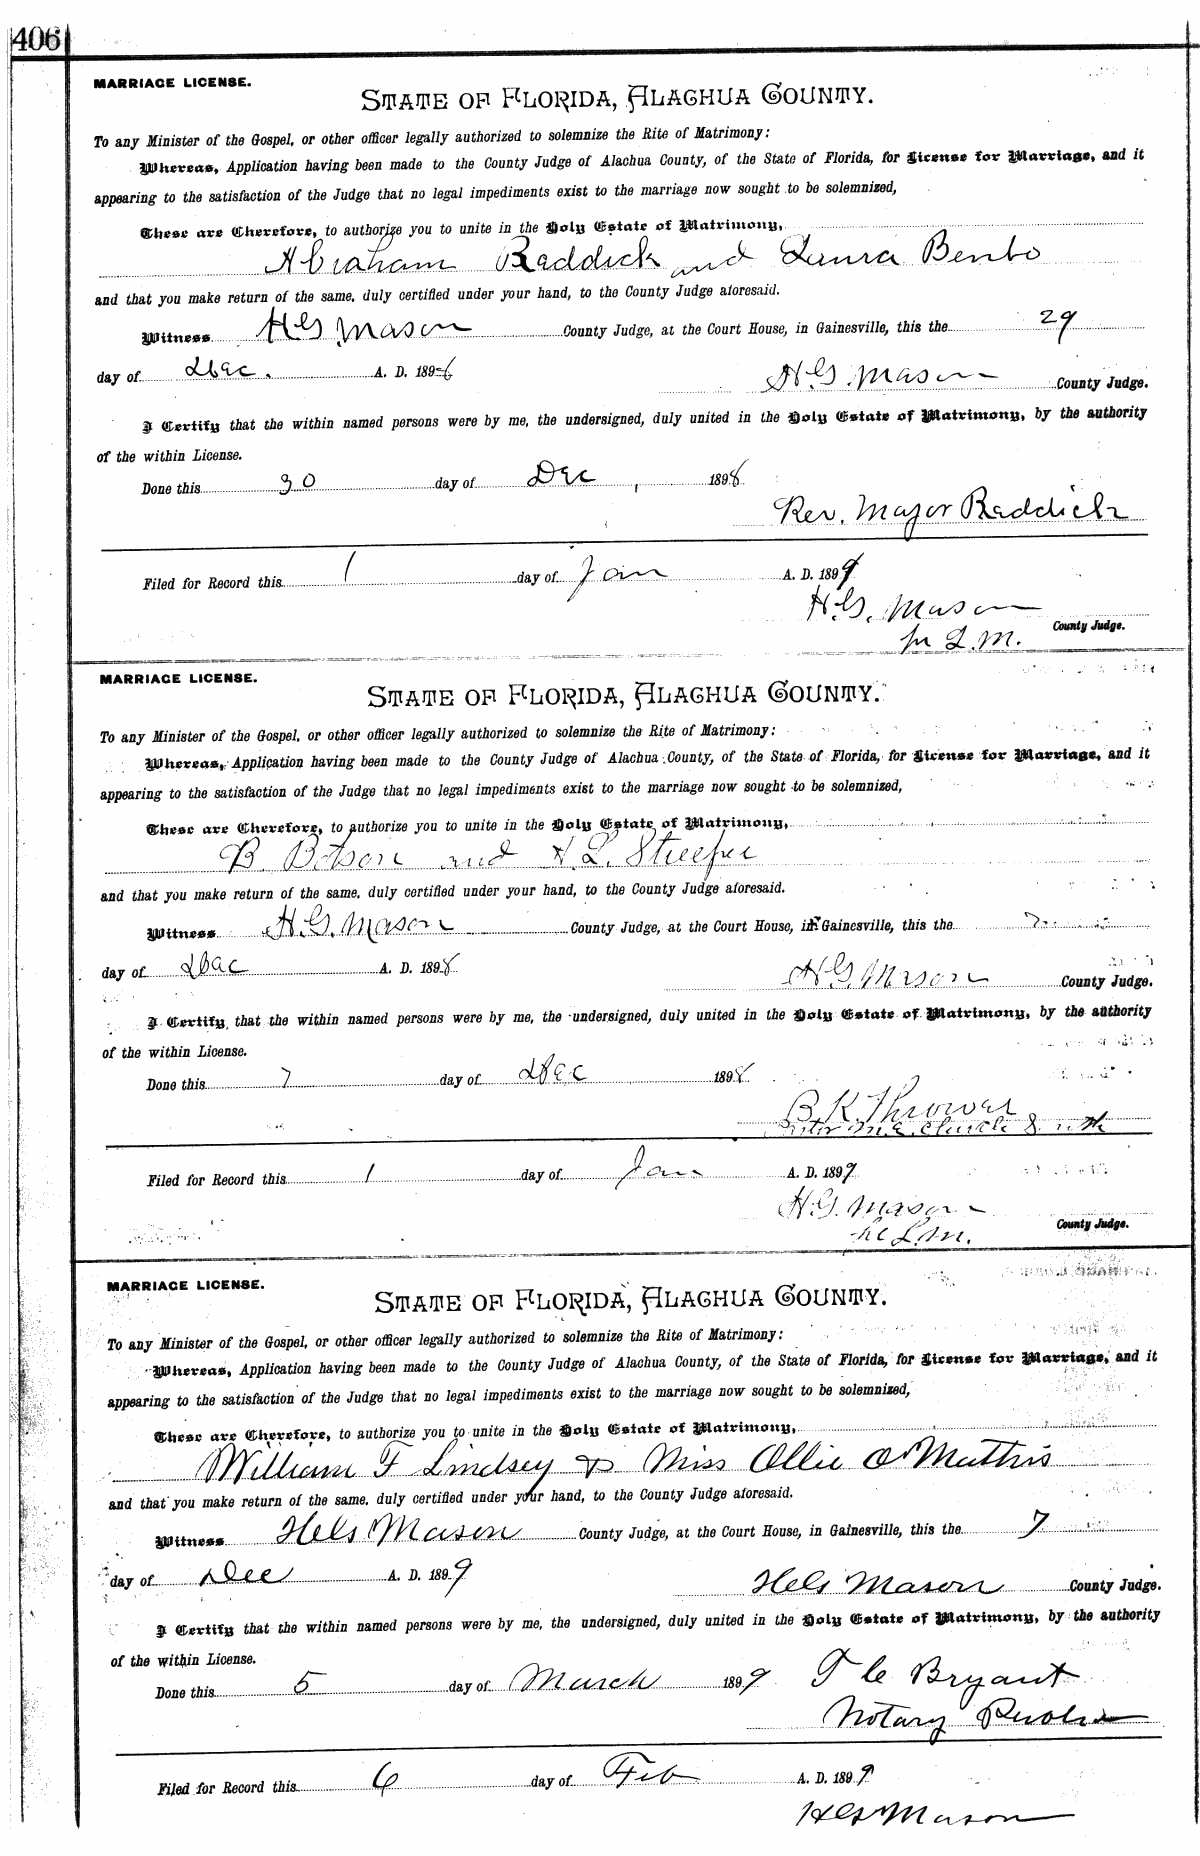 406
MARRIAGE LICENSE.
STATE OF FLORIDA, ALACHUA COUNTY.
To any Minister of the Gospel, or other officer legally authorized to solemnize the Rite of Matrimony:
Whereas, Application having been made to the County Judge of Alachua County, of the State of Florida, for License for Marriage, and it
appearing to the satisfaction of the Judge that no legal impediments exist to the marriage now sought to be solemnized,
These are Therefore, to authorize you to unite in the Holy Estate of Matrimony,
Abraham Raddick and Laura Benbo
and that you make return of the same, duly certified under your hand, to the County Judge aforesaid.
Witness H G Mason County Judge, at the Court House, in Gainesville, this the 29
day of Dec. A. D. 189
H. G. Mason County Judge.
I Certify that the within named persons were by me, the undersigned, duly united in the Holy Estate of Matrimony, by the authority
of the within License.
Done this 30 day of Dec, 1898
Rev. Major Raddick
Filed for Record this 1 day of Jan A. D. 1899
H. G. Mason
County Judge.
L. M.
MARRIAGE LICENSE.
STATE OF FLORIDA, ALACHUA COUNTY.
To any Minister of the Gospel, or other officer legally authorized to solemnize the Rite of Matrimony:
Whereas, Application having been made to the County Judge of Alachua County, of the State of Florida, for License for Marriage, and it
appearing to the satisfaction of the Judge that no legal impediments exist to the marriage now sought to be solemnized,
These are Therefore, to authorize you to unite in the Holy Estate of Matrimony,
B. Botson and L.
and that you make return of the same, duly certified under your hand, to the County Judge aforesaid.
Witness H. G. Mason County Judge, at the Court House, in Gainesville, this the 7
day of Dec A. D. 1898
H G. Mason County Judge.
I Certify that the within named persons were by me, the undersigned, duly united in the Holy Estate of Matrimony, by the authority
of the within License.
Done this 7 day of Dec 1898
B. K. Thrower
Pastor M. E. Church South
Filed for Record this 1 day of Jan A. D. 1899
H. G. Mason
County Judge.
L. M.
MARRIAGE LICENSE.
STATE OF FLORIDA, ALACHUA COUNTY.
To any Minister of the Gospel, or other officer legally authorized to solemnize the Rite of Matrimony:
Whereas, Application having been made to the County Judge of Alachua County, of the State of Florida, for License for Marriage, and it
appearing to the satisfaction of the Judge that no legal impediments exist to the marriage now sought to be solemnized,
These are Therefore, to authorize you to unite in the Holy Estate of Matrimony,
William F Lindsey & Miss Ollie O Mathis
and that you make return of the same, duly certified under your hand, to the County Judge aforesaid.
Witness H G Mason County Judge, at the Court House, in Gainesville, this the 7
day of Dec A. D. 1899
H G Mason County Judge.
I Certify that the within named persons were by me, the undersigned, duly united in the Holy Estate of Matrimony, by the authority
of the within License.
Done this 5 day of March 1899 T C Bryant
Notary Public
Filed for Record this 6 day of Feb A. D. 1899
H G Mason